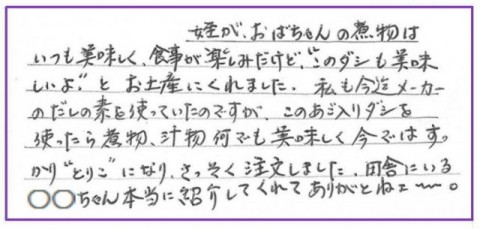 姪が、おばちゃんの煮物は
いつも美味しく、食事が楽しみだけど、“このダシも美味
しいよ”と お土産にくれました。私も今迄メーカー
のだしの素を使っていたのですが、このあご入りダシを
使ったら煮物、汁物何でも美味しく今ではす。
かり“とりこ”になり、さっそく注文しました。田舎にいる
○○ちゃん本当に紹介してくれてありがとねェ〜〜。